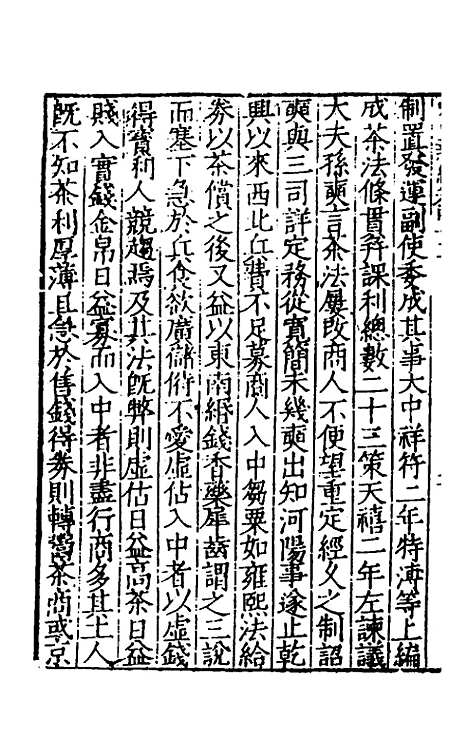 制置發運副使委成其事大中祥符二年特溥等上編
成茶法條貫并課利總數二十三策天禧二年左諫議
大夫孫奭言茶法屢改商人不便望重定經久之制詔
奭與三司詳定務從寛簡未幾奭出知河陽事遂止乾
興以來西北兵費不足募商人入中芻粟如雍熙法給
劵以茶償之後又益以東南緡錢香藥犀齒謂之三說
而塞下急於兵食欲廣儲偫不愛虛估入中者以虛錢
得實利人競趨焉及其法旣弊則虛估日益高茶日益
賤入實錢金帛日益寡而入中者非盡行商多其土人
旣不知茶利厚薄且急於售錢得劵則轉鬻茶商或京